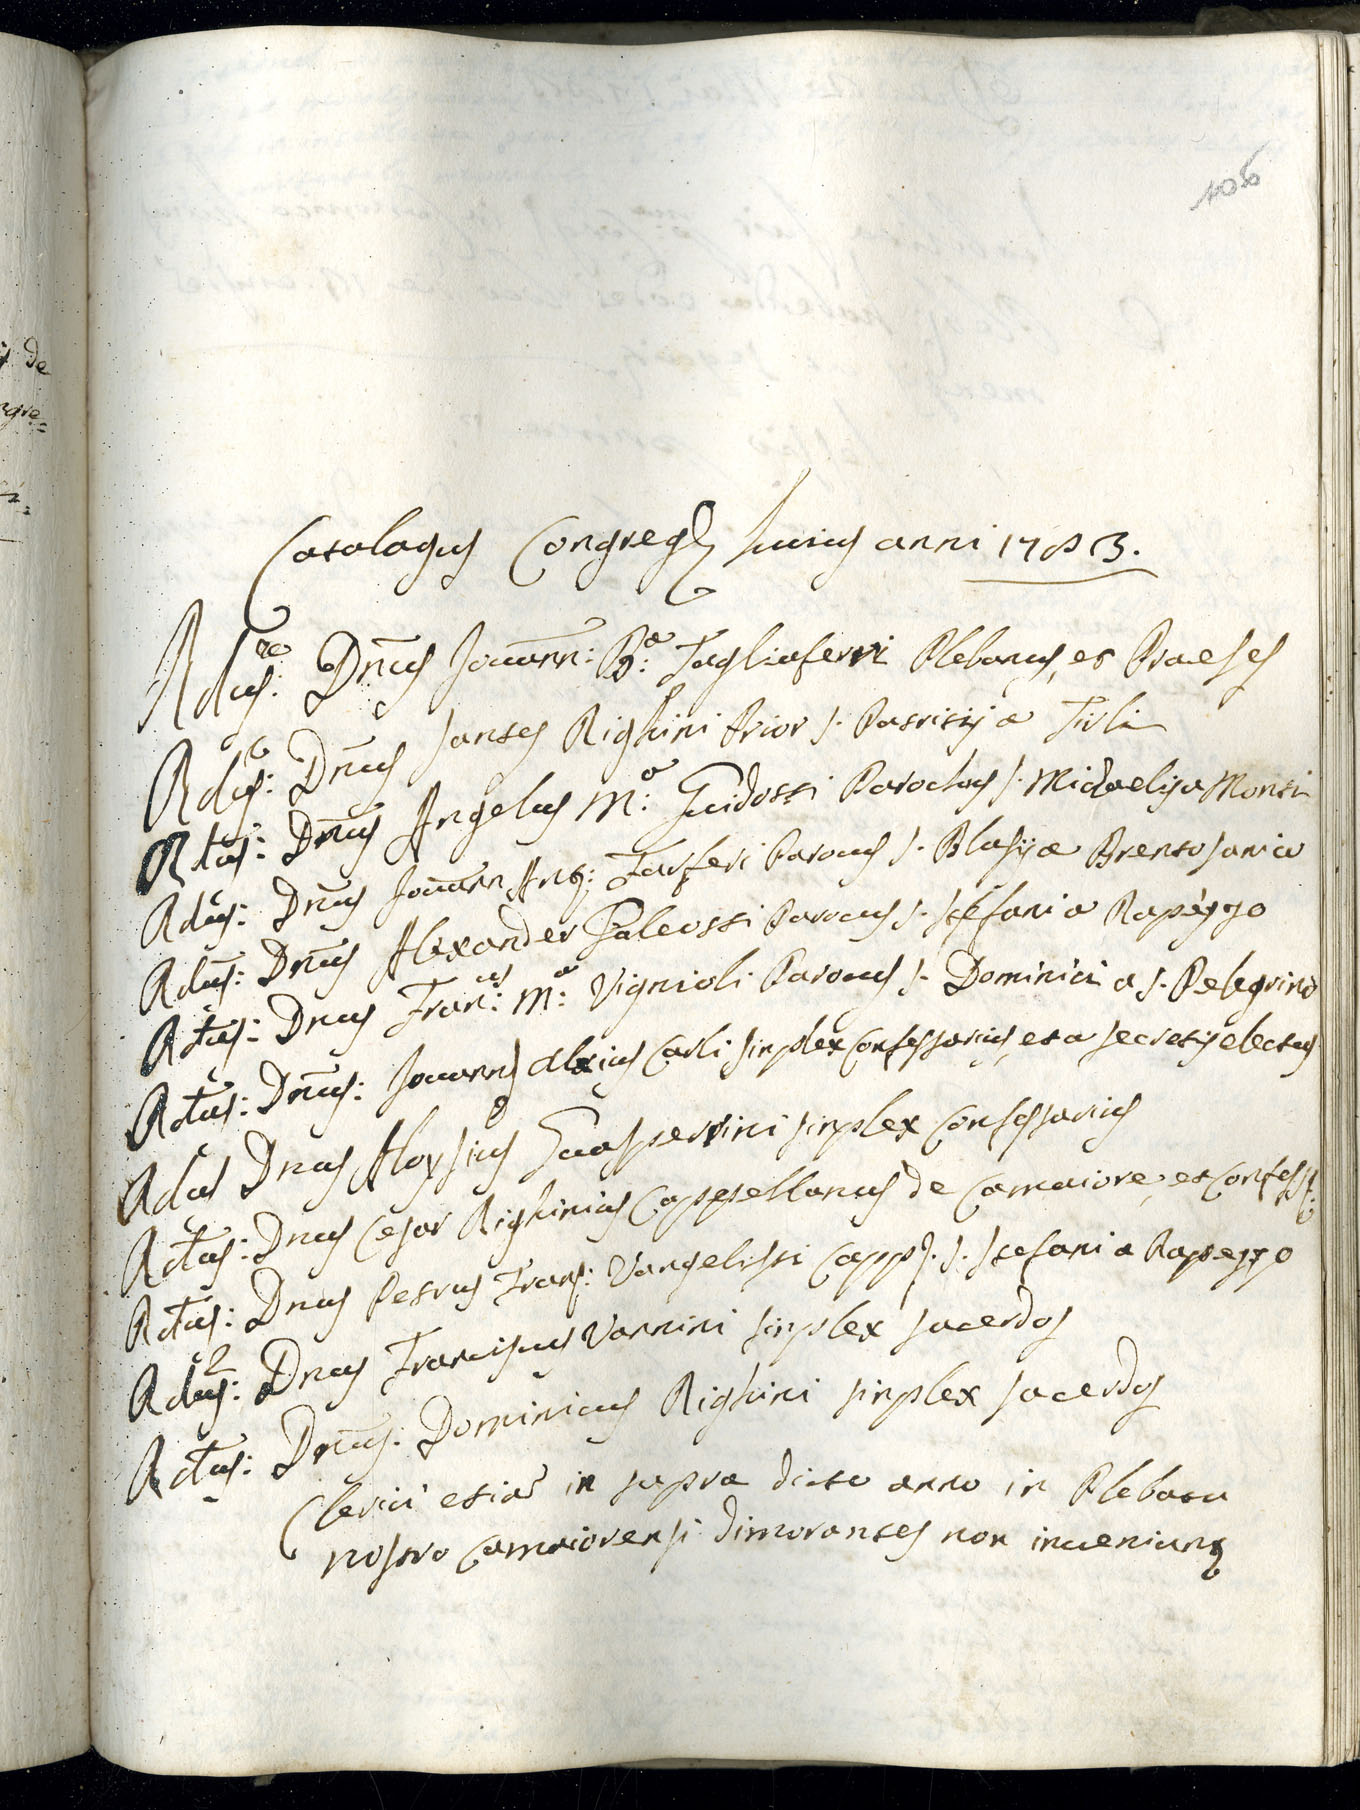 106
Catalogus Congreg: huius anni 1783.
Rdus: Dnus Jouann: Ba: Tagliaferri Plebanus, et Praeses
Rdus: Dnus Santes Righini Prior S. Patritij a
Rdus: Dnus Angelus Ma: Guidotti Parochus S. Michaelis a Monti
Rdus: Dnus Jouann Ang: Parocus S. Blasij a Brento Sanico
Rdus: Dnus Alexander Galeotti Parocus S. Stefani a Rapezzo
Rdus: Dnus Franus: Ma: Vignioli Parocus S. Dominici a S. Pelegrino
Rdus: Dnus: Jouanns Alexius Carli simplex Confessarius, et a secretis electus
Rdus Dnus Aloysius Guasperrini simplex Confessarius
Rdus: Dnus Cesar Righinius Cappellanus de Camaiore, et Confess:
Rdus: Dnus Petrus Frans: Vangelisti Capp. S. Stefani a Rapezzo
Rdus: Dnus Franciscus Vannini simplex sacerdos
Rdus: Dnus. Dominicus Righini simplex sacerdos
Clerici etia in supra dicto anno in Plebatu
nostro Camaiorensi dimorantes non inueniunt
de
ngre=